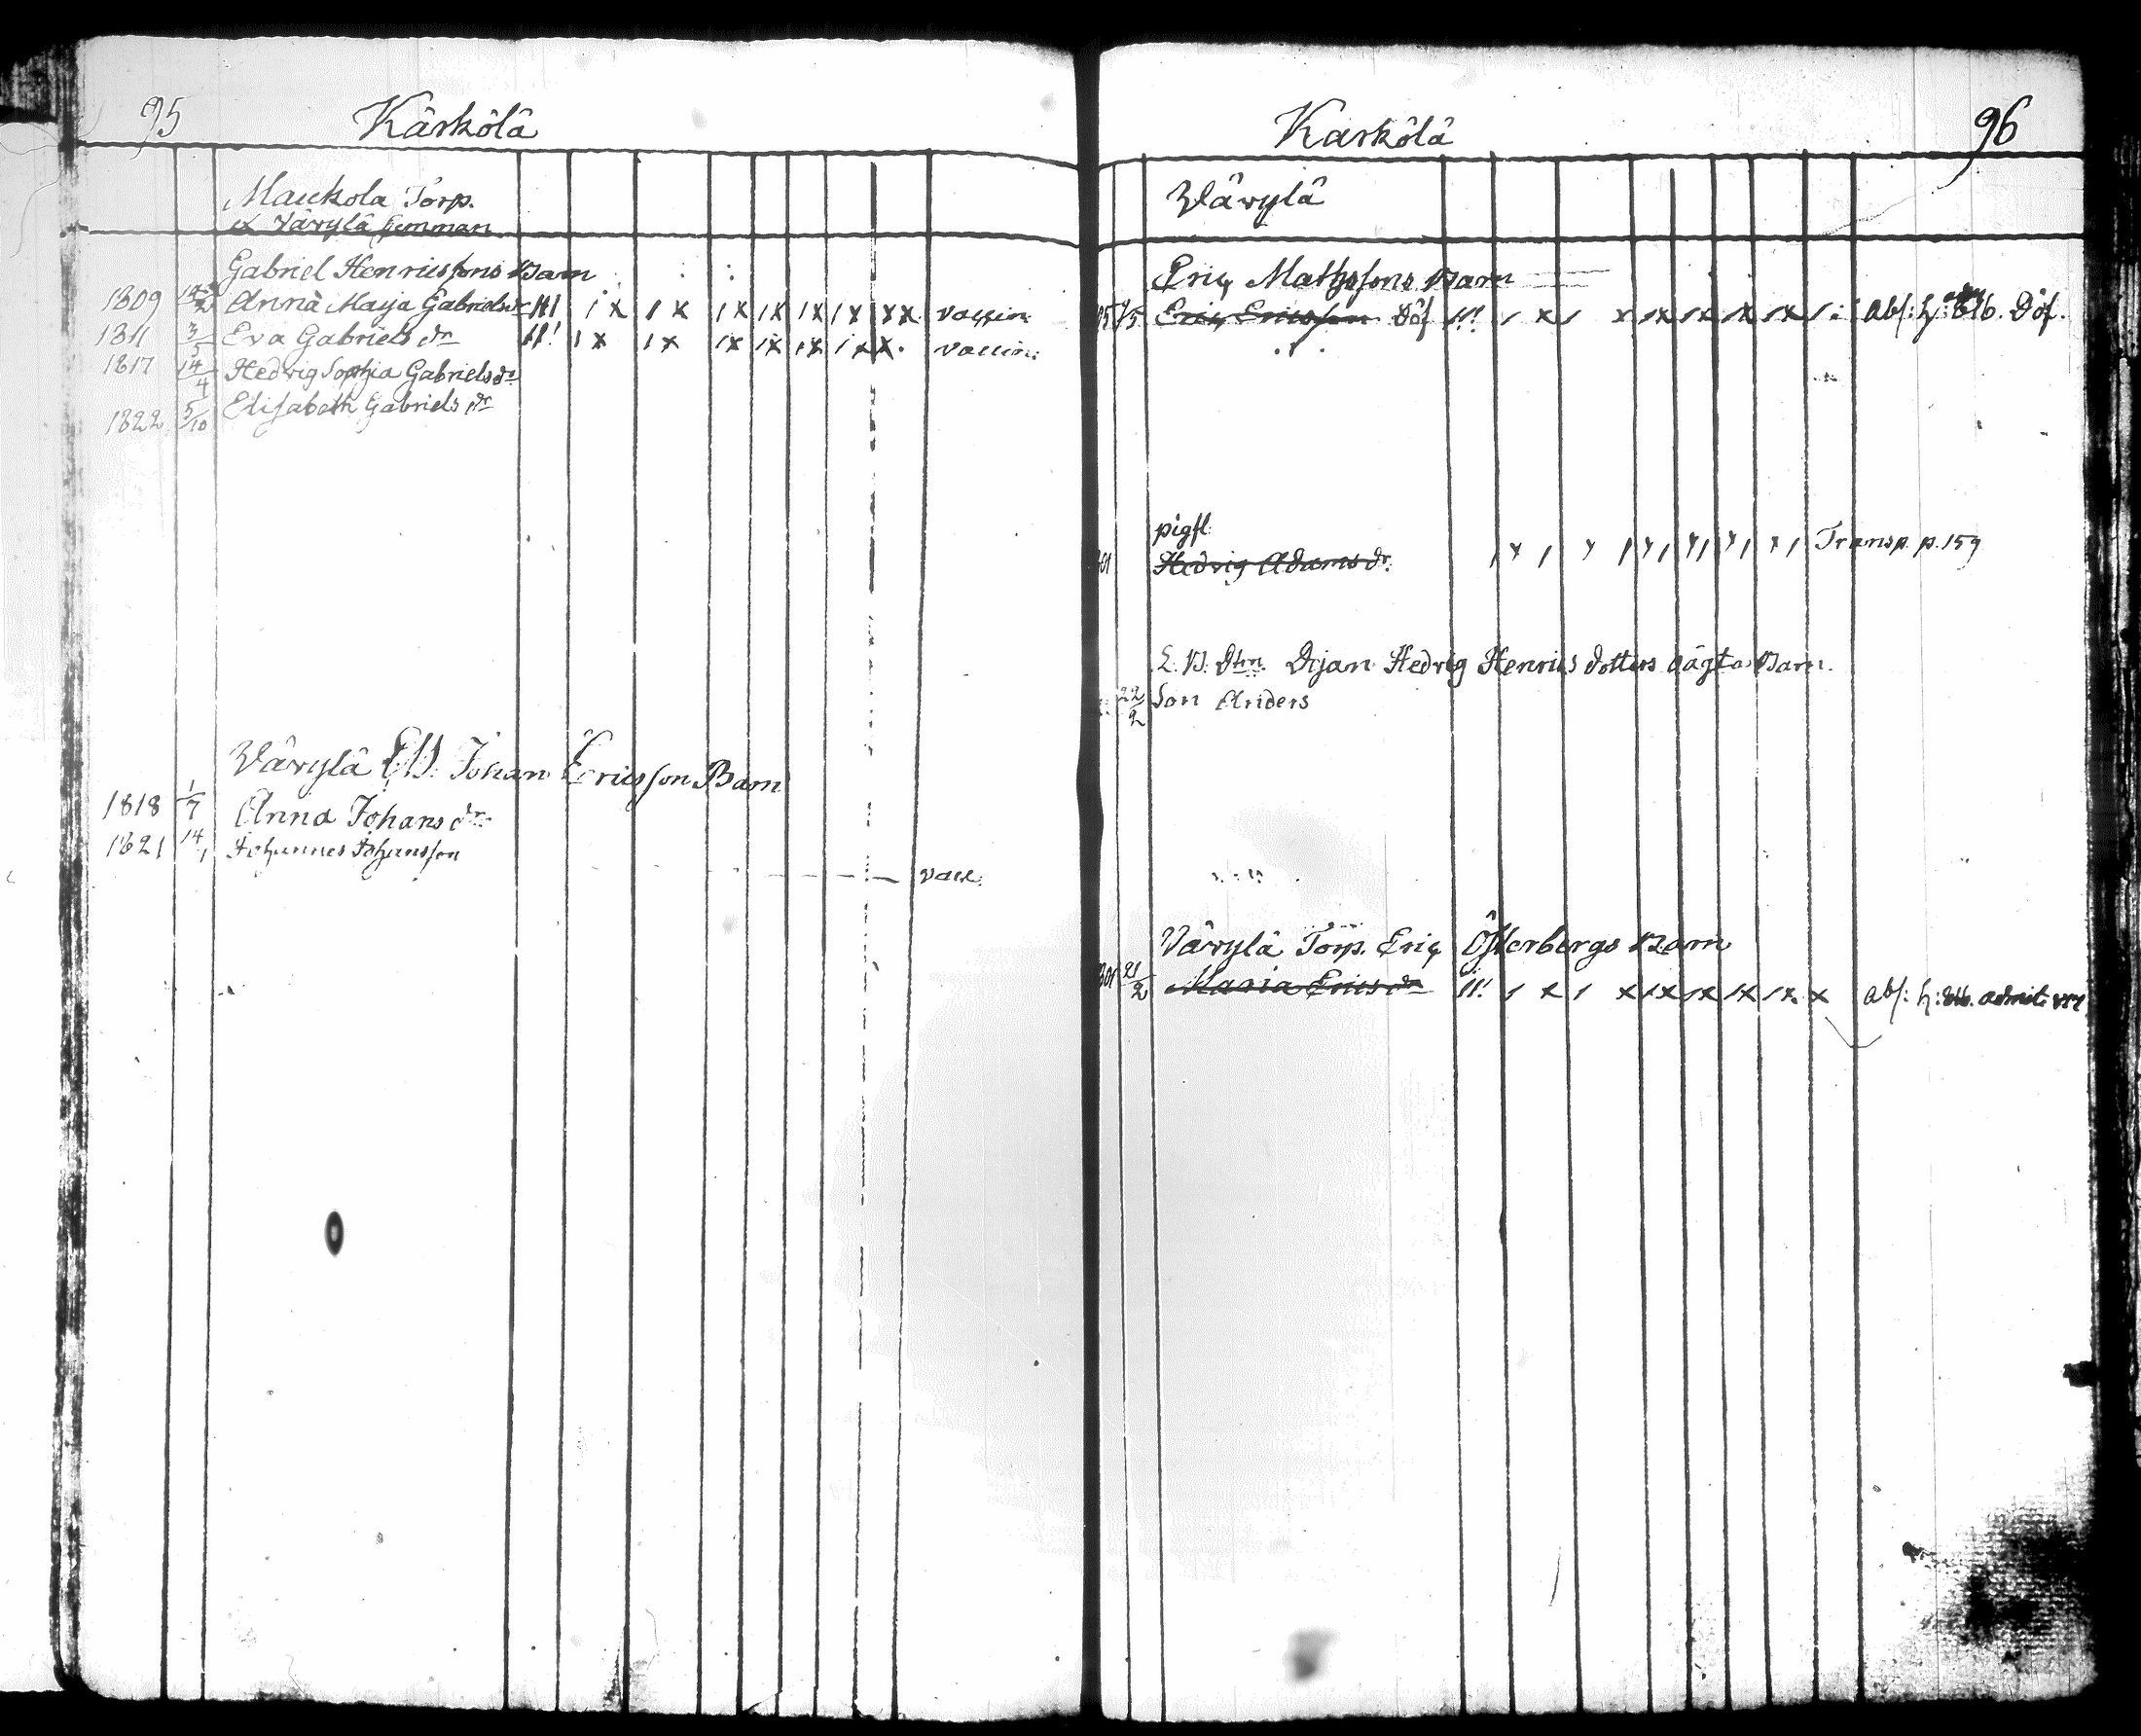 95 Kärkölä
Maukola Torp.
et Värylä hemman
Gabriel Henricssons Barn
1809 Anna Maja Gabrielsdr 111 1 x 1 x 1x 1x 1x 1x xx vaccin
1811 3/5 Eva Gabriels dr 11! 1 x 1x 1x 1x 1x 1xx. vaccin:
1817 14/4 Hedvig Sophia Gabrielsdr
1822 5/10 Elisabeth Gabriels dr
Värylä Johan Ericsson Barn
1818 1/7 Anna Johans dr
1821 14/1 Johannes Johansson
vacc.
Karkölä 96
Värylä
Eric Mathssons Barn
Eric Ericsson Döf 11! 1 x 1 x 1x 1x 1x 1x 1 abs: h: Döf.
pigfl.
Hedvig Adamsdr. Transp. p. 159
Pijan Hedvig Henrics dotters oägta Barn
22/2 Son Anders
Värylä Torp. Eric Österbergs Barn
21/2 Maria Ericsdr 11! 1 x 1 x 1x 1x 1x 1x x abs: h: admit: